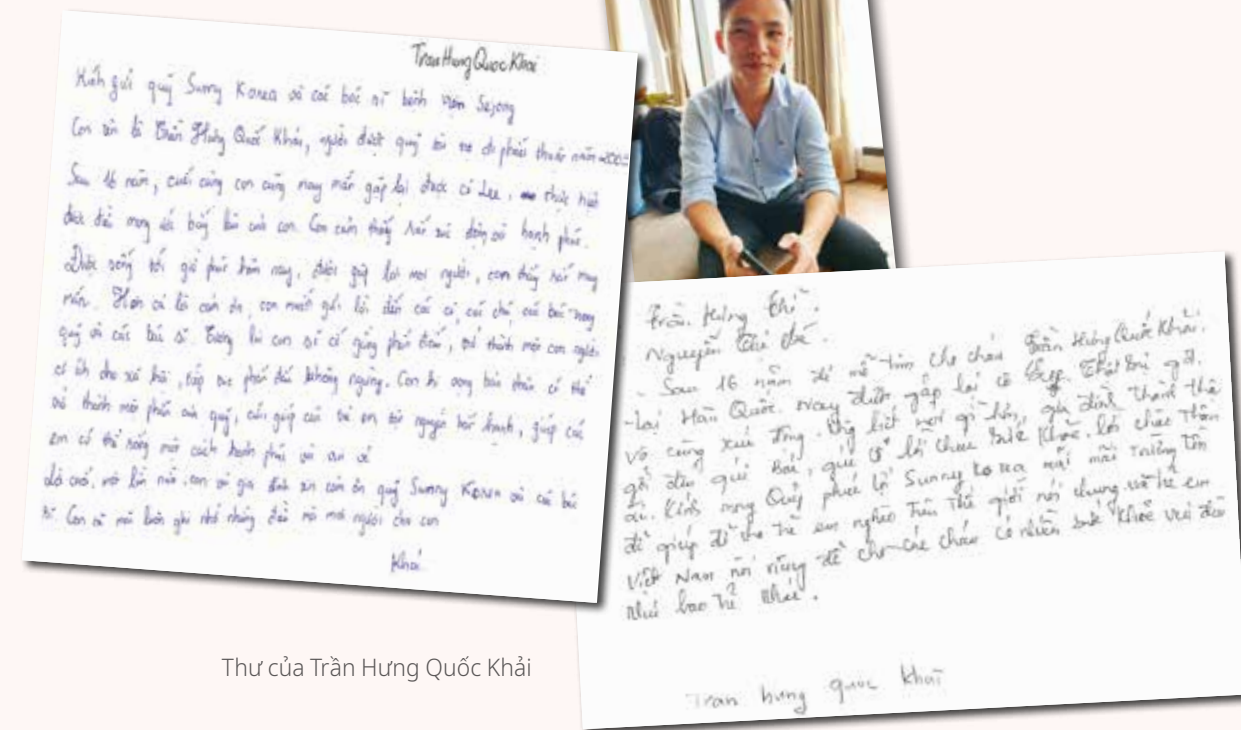 Trần Hưng Quốc Khải
Kính gửi quỹ Sunny Korea và các bác sĩ bệnh viện Sejong
Con tên là Trần Hưng Quốc Khải, người được quỹ tài trợ đi phẫu thuật năm
Sau 16 năm, cuối cùng con cũng may mắn gặp lại được cô Lee, thực hiện
được mong ước bấy lâu của con. Con cảm thấy rất xúc động và hạnh phúc.
Được sống tới giờ phút hôm nay, được gặp lại mọi người, con thấy rất may
mắn. Hơn cả lời cảm ơn, con muốn gửi lời đến các cô, các chú, các bác trong
quỹ và các bác sĩ. Tương lai con sẽ cố gắng phấn đấu, trở thành một con người
có ích cho xã hội, tiếp tục phấn đấu không ngừng. Con hi vọng bản thân có thể
trở thành một phần của quỹ, giúp các
em có thể sống một cách hạnh phúc và vui vẻ
Lời cuối, một lần nữa, con và gia đình xin cảm ơn quỹ Sunny Korea và các bác
sĩ. Con sẽ mãi luôn ghi nhớ những điều mà mọi người cho con
Khải
Trần Hưng Thi
Nguyễn Thị
Sau 16 năm đi mổ tim cho cháu Trần Hưng Quốc Khải.
tại Hàn Quốc. nay được gặp lại cô Lee. Thật
vô cùng xúc động. không biết nói gì hơn, gia đình thành thật
gởi đến quí Bác, quí cô lời chúc sức khoẻ, lời chúc thân
ái. Kính mong Quỹ phúc lợi Sunny Korea mãi mãi trường tồn
để giúp đỡ cho trẻ em nghèo trên thế giới nói chung và trẻ em
Việt Nam nói riêng để cho các cháu có nhiều sức khoẻ vui đùa
như bao trẻ khác.
Tran hung quốc khải
Thư của Trần Hưng Quốc Khải